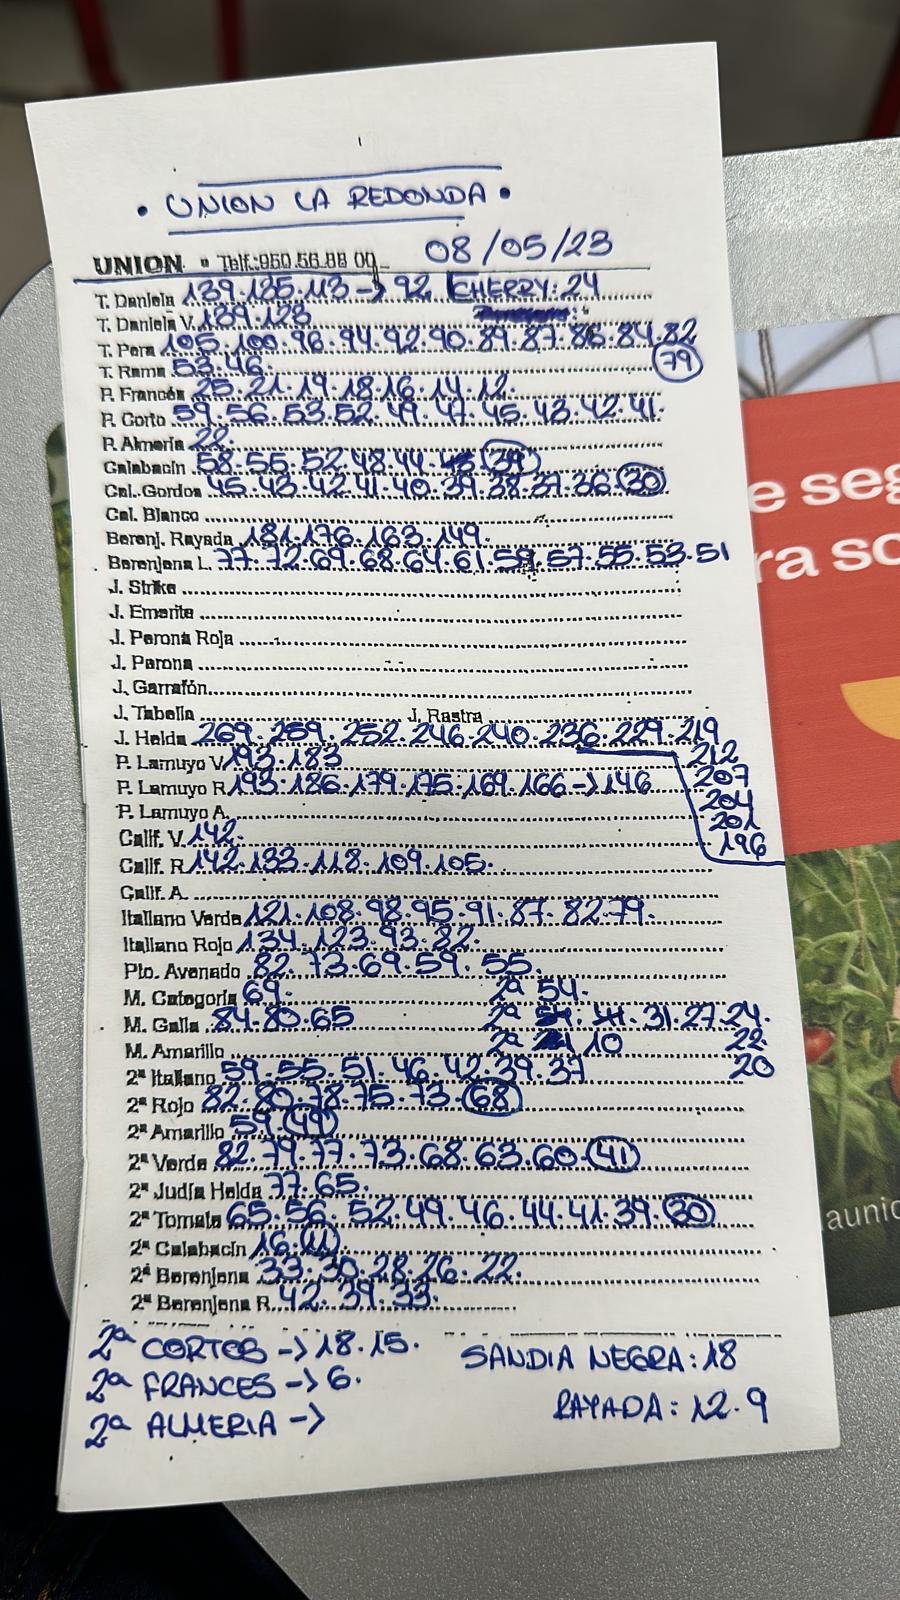 • UNION LA REDONDA •
UNION • Telf.:950.56.88 00 08/05/23
T. Daniela 139.135.113 → 92 CHERRY: 24
T. Daniela V. 139.123
T. Pera 105.100.96.94.92.90.89.87.86.84.82
T. Rama 53.46. 79
P. Francés 25.21.19.18.16.14.12.
P. Corto 59.56.53.52.49.47.45.43.42.41.
P. Almería 22.
Calabacín 58.55.52.48.44. 39
Cal. Gordos 45.43.42.41.40.39.38.37.36.30
Cal. Blanco
Berenj. Rayada 181.176.163.149.
Berenjena L. 77.72.69.68.64.61.59.57.55.53.51
J. Strike
J. Emerite
J. Perona Roja
J. Perona
J. Garrafón
J. Tabella J. Rastra
J. Helda 269.259.252.246.240.236.229.219
P. Lamuyo V. 193.183 212
P. Lamuyo R. 193.186.179.175.169.166 → 146 207
P. Lamuyo A. 204
Calif. V. 142. 201
Calif. R. 142.133.118.109.105. 196
Calif. A.
Italiano Verde 121.108.98.95.91.87.82.79.
Italiano Rojo 134.123.93.82.
Pto. Avenado 82.73.69.59.55.
M. Categoría 69. 2ª 54.
M. Galia 84.80.65 2ª 31.27.24.
M. Amarillo 2ª 10 22.
2ª Italiano 59.55.51.46.42.39.37 20
2ª Rojo 82.80.78.75.73.68
2ª Amarillo 59.49
2ª Verde 82.79.77.73.68.63.60.41
2ª Judía Helda 77.65.
2ª Tomate 65.56.52.49.46.44.41.39.30
2ª Calabacín 16.11
2ª Berenjena 33.30.28.26.22.
2ª Berenjena R. 42.39.33.
2ª CORTOS → 18.15. SANDIA NEGRA: 18
2ª FRANCES → 6. RAYADA: 12.9
2ª ALMERIA →
e seg
ra so
aunio